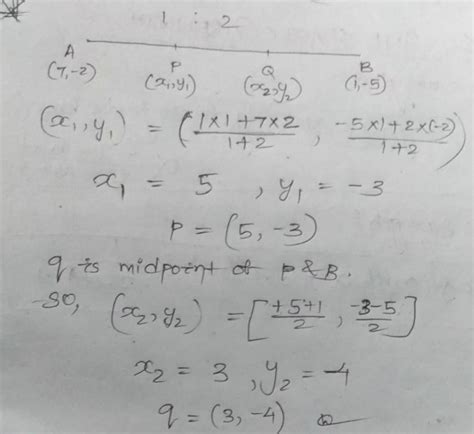 1 : 2
A P Q B
(7,-2) (x₁,y₁) (x₂,y₂) (1,-5)
(x₁,y₁) = (1×1+7×2/1+2 , -5×1+2×(-2)/1+2)
x₁ = 5 , y₁ = -3
P = (5, -3)
q is midpoint of P & B.
-SO, (x₂,y₂) = [+5+1/2 , -3-5/2]
x₂ = 3 , y₂ = -4
q = (3, -4)